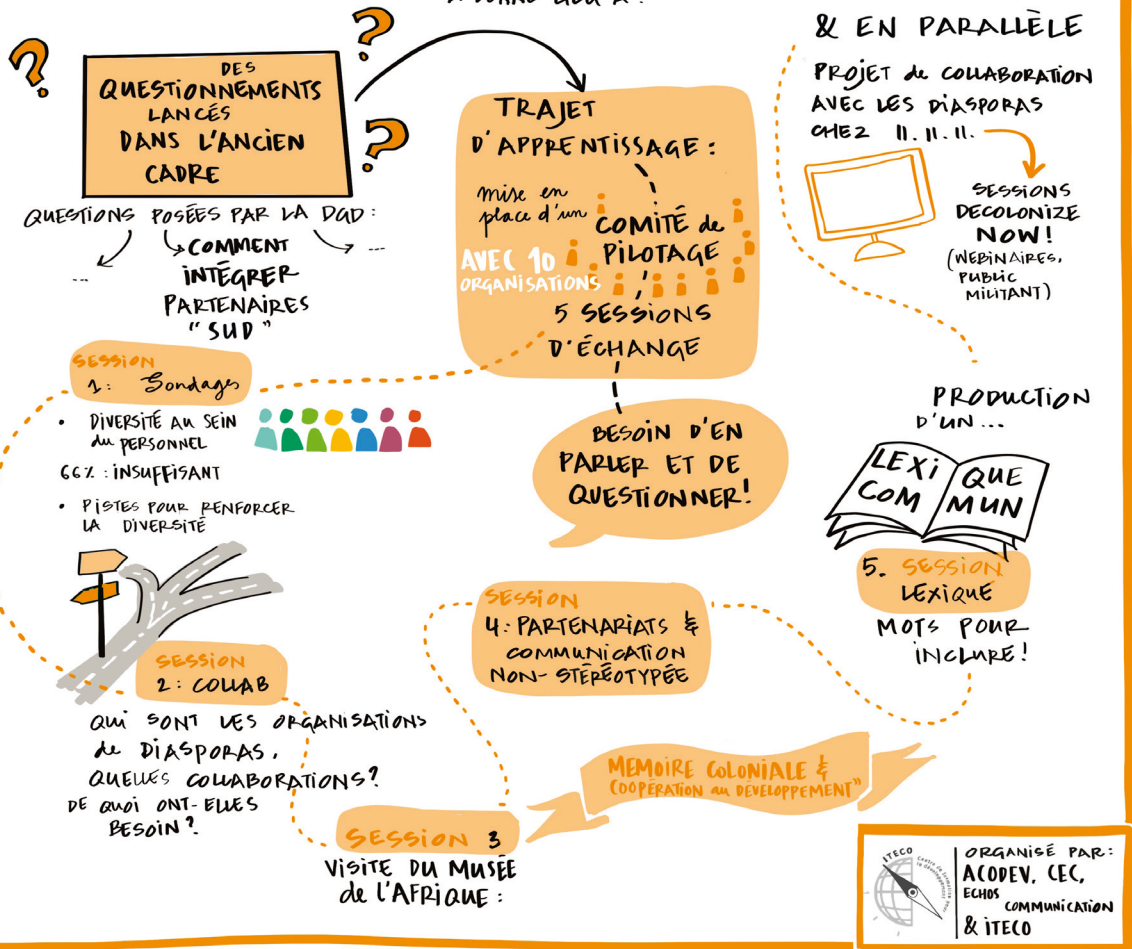 DES
QUESTIONNEMENTS
LANCÉS
DANS L'ANCIEN
CADRE
QUESTIONS POSÉES PAR LA DGD :
...
COMMENT
INTÉGRER
PARTENAIRES
"SUD"
...
TRAJET
D'APPRENTISSAGE :
mise en
place d'un
COMITÉ de
PILOTAGE
AVEC 10
ORGANISATIONS
5 SESSIONS
D'ÉCHANGE
BESOIN D'EN
PARLER ET DE
QUESTIONNER!
& EN PARALLÈLE
PROJET de COLLABORATION
AVEC LES DIASPORAS
CHEZ 11.11.11.
SESSIONS
DECOLONIZE
NOW!
(WEBINAIRES,
PUBLIC
MILITANT)
SESSION
1: Sondages
• DIVERSITÉ AU SEIN
du PERSONNEL
66% : INSUFFISANT
• PISTES POUR RENFORCER
LA DIVERSITÉ
SESSION
2: COLLAB
QUI SONT LES ORGANISATIONS
de DIASPORAS,
QUELLES COLLABORATIONS?
DE QUOI ONT-ELLES
BESOIN?
SESSION 3
VISITE DU MUSÉE
de L'AFRIQUE :
MEMOIRE COLONIALE &
COOPÉRATION au DÉVELOPPEMENT"
SESSION
4: PARTENARIATS &
COMMUNICATION
NON-STÉRÉOTYPÉE
PRODUCTION
D'UN...
LEXI QUE
COM MUN
5. SESSION
LEXIQUE
MOTS POUR
INCLURE!
ITECO
Centre de formation pour
le développement
ORGANISÉ PAR:
ACODEV, CEC,
ECHOS
COMMUNICATION
& ITECO